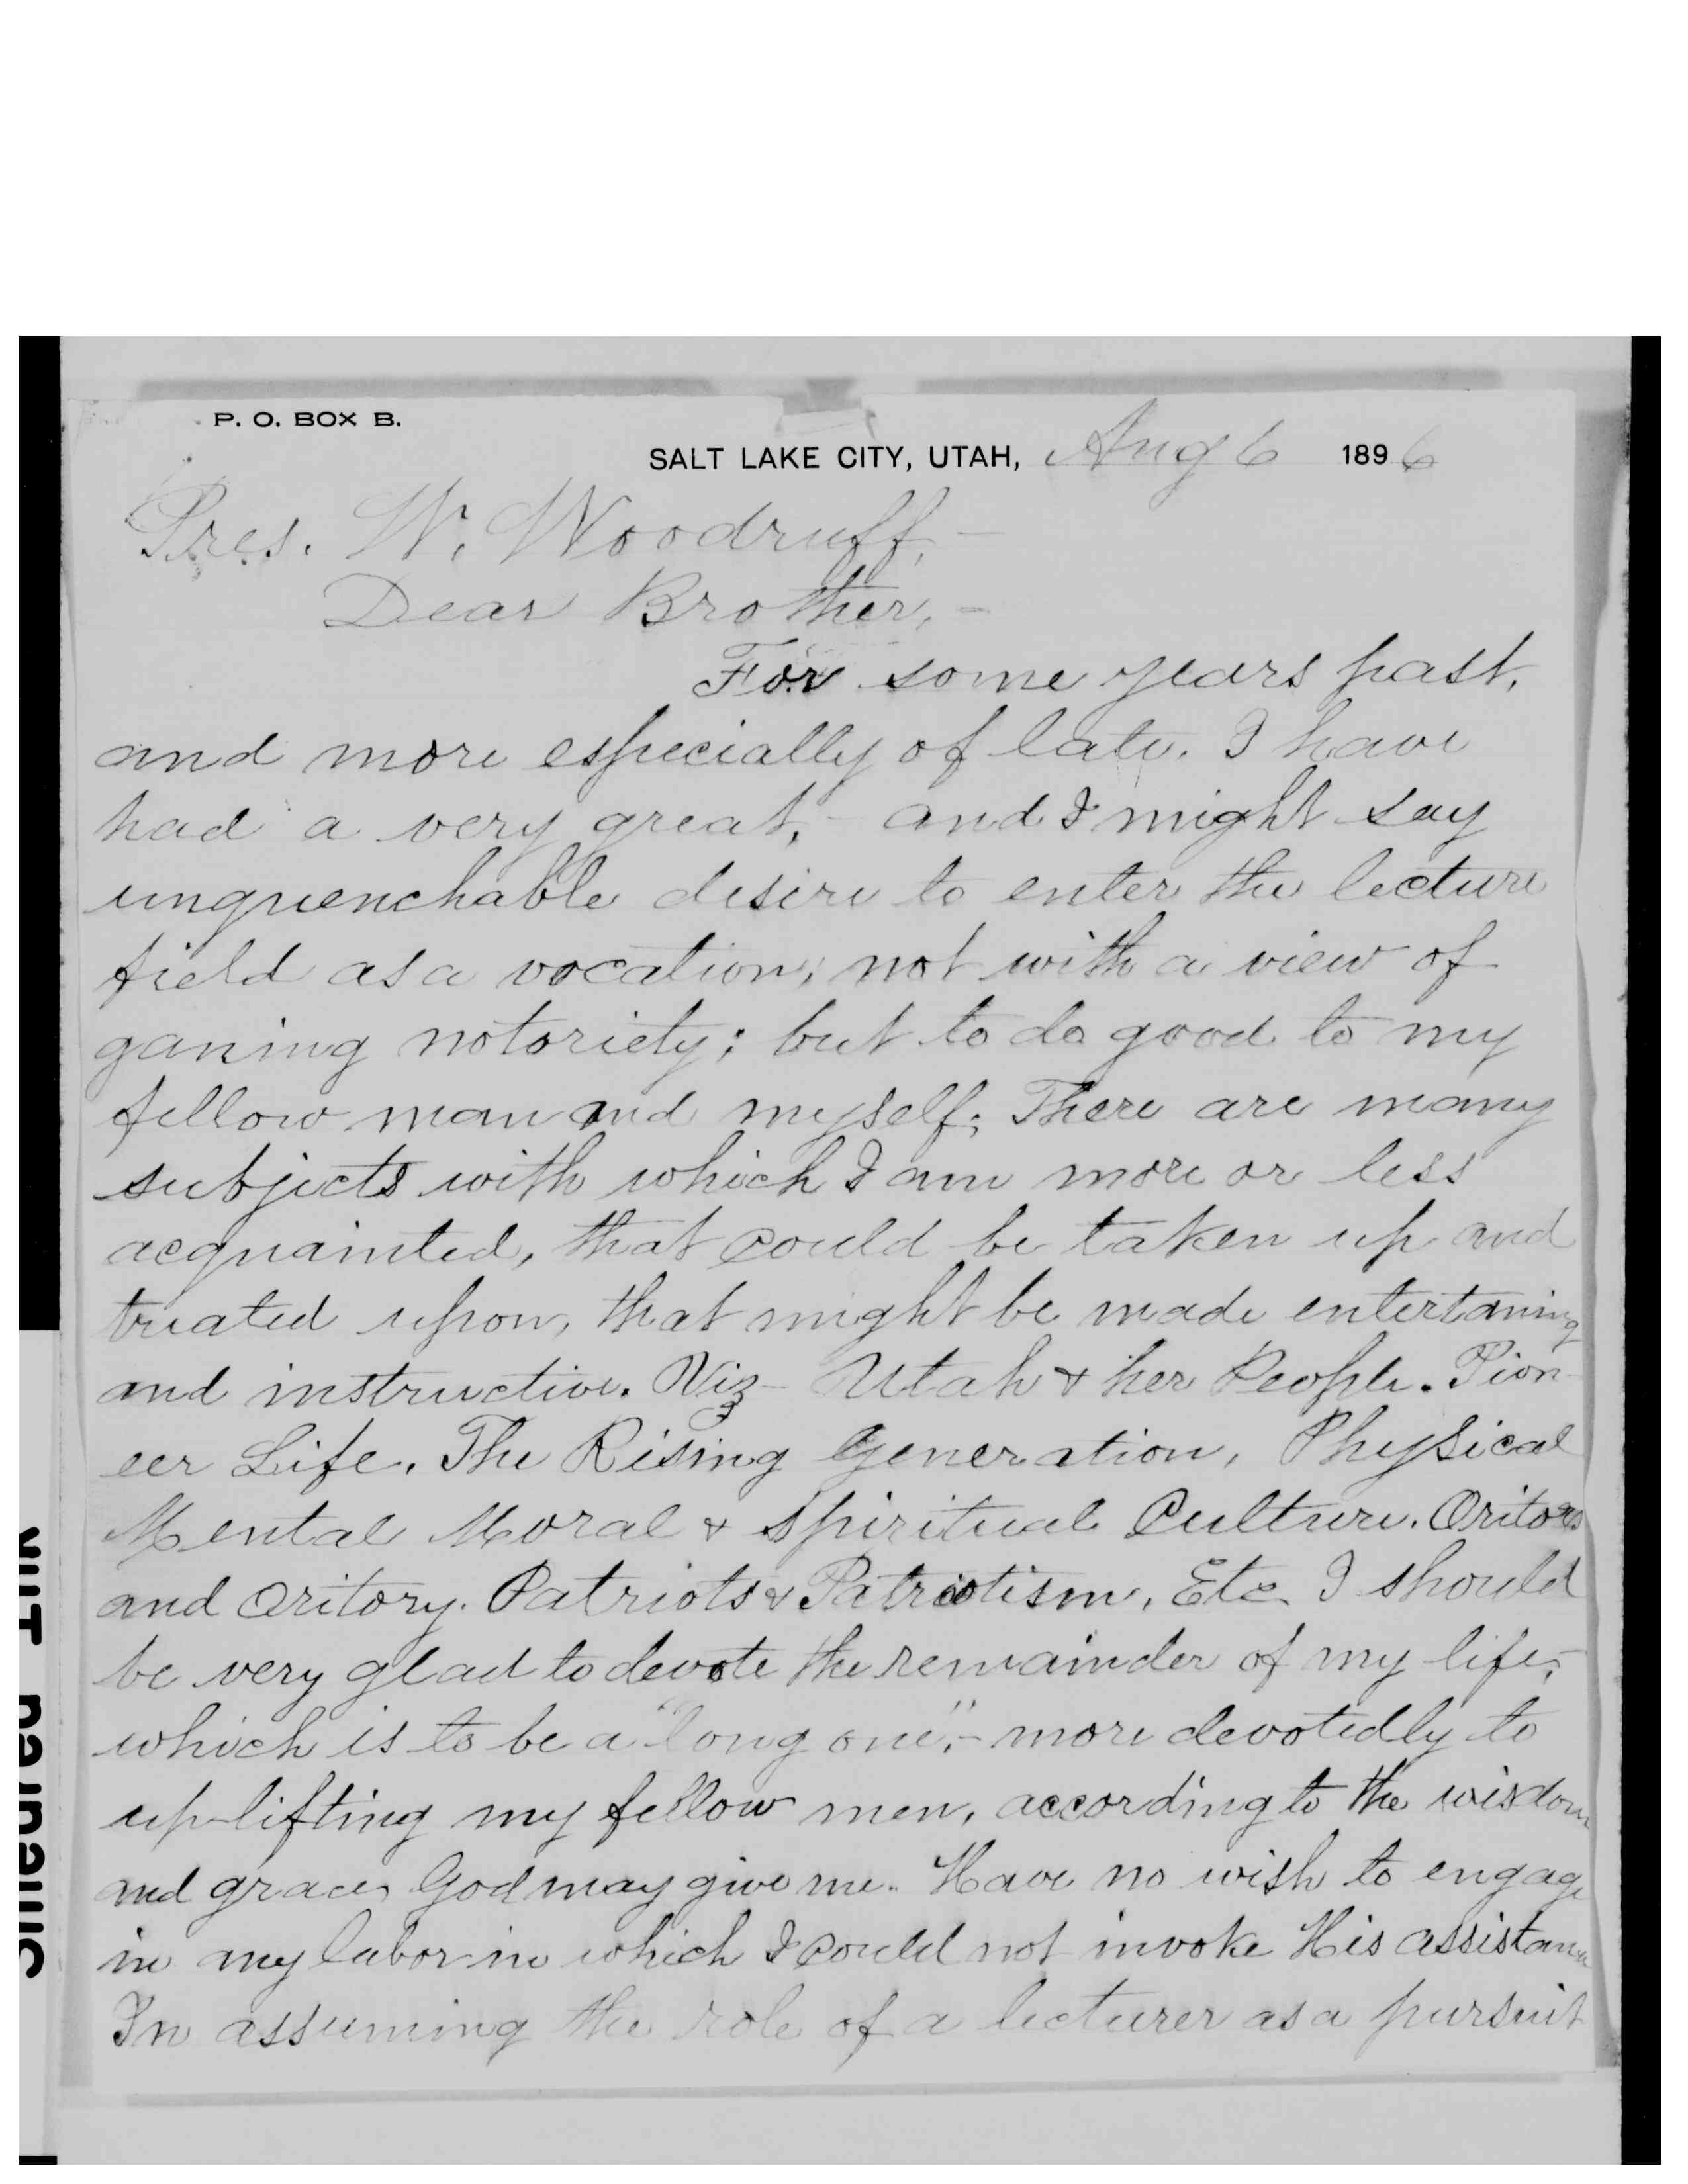 P. O. BOX B.
SALT LAKE CITY, UTAH, Aug 6 1896
Pres. W. Woodruff,-
Dear Brother,-
For some years past,
and more especially of late. I have
had a very great,- and I might say
unquenchable desire to enter the lecture
field as a vocation; not with a view of
ganing notoriety; but to do good to my
fellow man and myself; There are many
subjects with which I am more or less
acquainted, that could be taken up and
treated upon, that might be made entertaning
and instructive. Viz- Utah & her People. Pion-
eer Life. The Rising Generation, Physical
Mental Moral & Spiritual Culture. Oritors
and Oritory. Patriots & Patriotism, Etc. I should
be very glad to devote the remainder of my life,-
which is to be a "long one",- more devotedly to
up-lifting my fellow men, according to the wisdom
and graces God may give me. Have no wish to engage
in any labor in which I could not invoke His assistance
In assuming the role of a lecturer as a pursuit